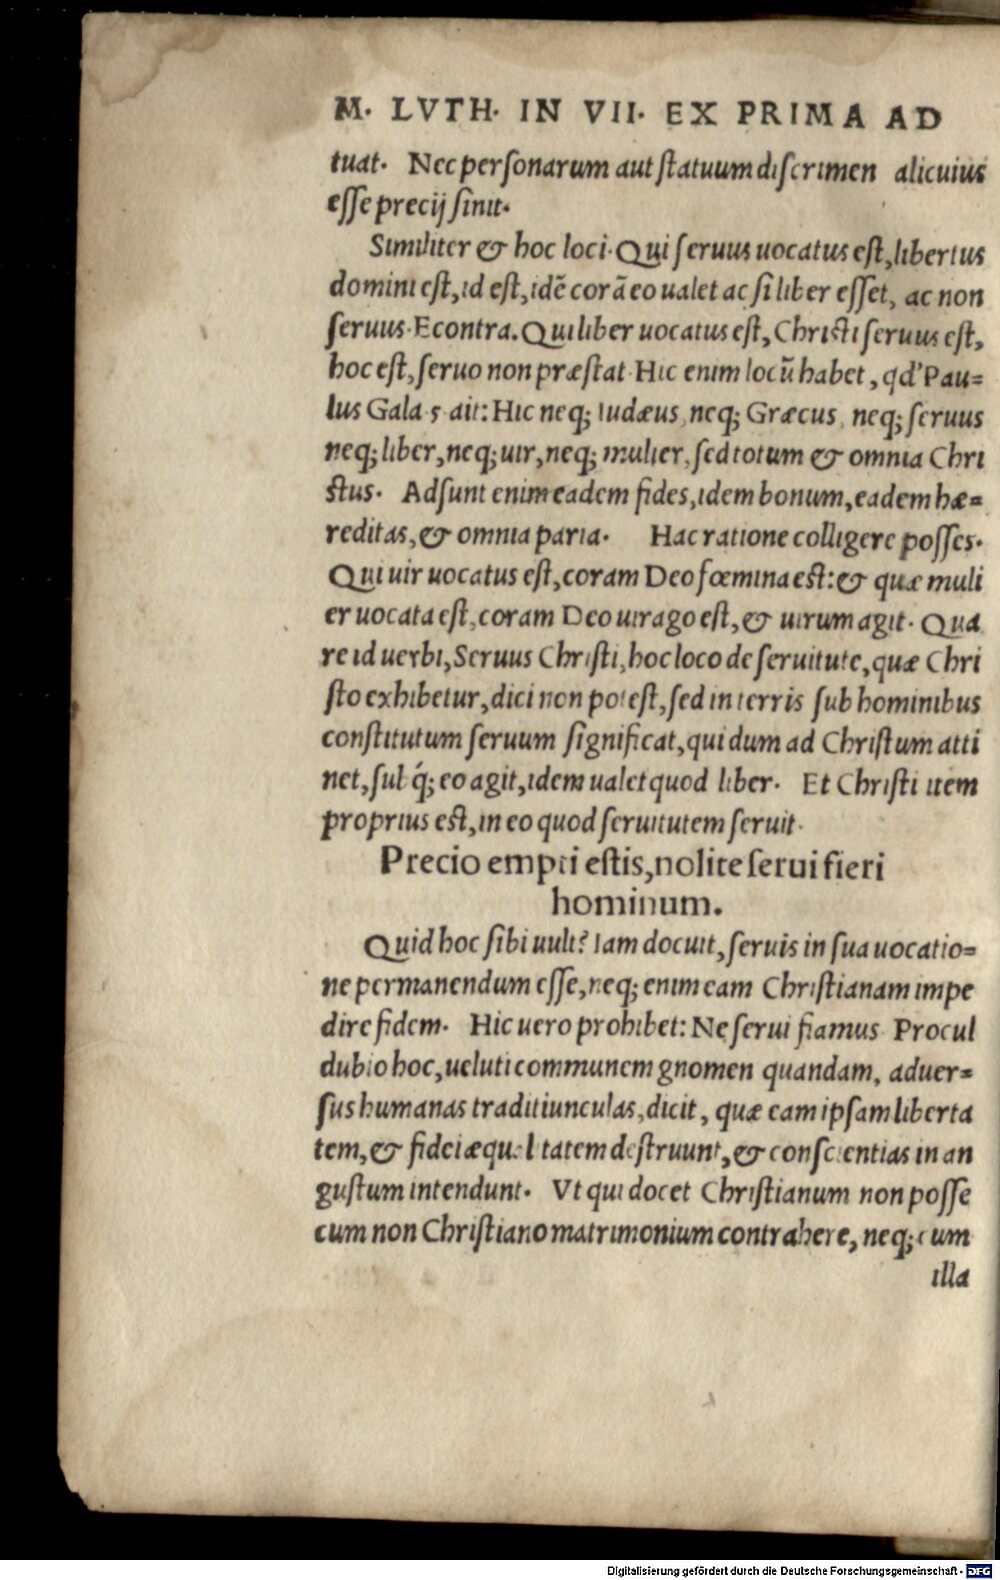 M. LVTH. IN VII. EX PRIMA AD
tuat. Nec personarum aut statuum discrimen alicuius
esse precij sinit.
Similiter & hoc loci. Qui seruus uocatus est, libertus
domini est, id est, idē corā eo ualet ac si liber esset, ac non
seruus. Econtra. Qui liber uocatus est, Christi seruus est,
hoc est, seruo non præstat. Hic enim locū habet, qd' Pau=
lus Gala 5 ait: Hic neq; Iudæus, neq; Græcus, neq; seruus
neq; liber, neq; uir, neq; mulier, sed totum & omnia Chri
stus. Adsunt enim eadem fides, idem bonum, eadem hæ=
reditas, & omnia paria. Hac ratione colligere posses.
Qui uir uocatus est, coram Deo fœmina est: & quæ muli
er uocata est, coram Deo uirago est, & uirum agit. Qua
re id uerbi, Seruus Christi, hoc loco de seruitute, quæ Chri
sto exhibetur, dici non potest, sed in terris sub hominibus
constitutum seruum significat, qui dum ad Christum atti
net, sub q́; eo agit, idem ualet quod liber. Et Christi item
proprius est, in eo quod seruitutem seruit.
Precio empti estis, nolite serui fieri
hominum.
Quid hoc sibi uult? Iam docuit, seruis in sua uocatio=
ne permanendum esse, neq; enim eam Christianam impe
dire fidem. Hic uero prohibet: Ne serui fiamus Procul
dubio hoc, ueluti communem gnomen quandam, aduer=
sus humanas traditiunculas, dicit, quæ eam ipsam liberta
tem, & fidei æqualitatem destruunt, & conscientias in an
gustum intendunt. Vt qui docet Christianum non posse
cum non Christiano matrimonium contrahere, neq; cum
illa
Digitalisierung gefördert durch die Deutsche Forschungsgemeinschaft - DFG